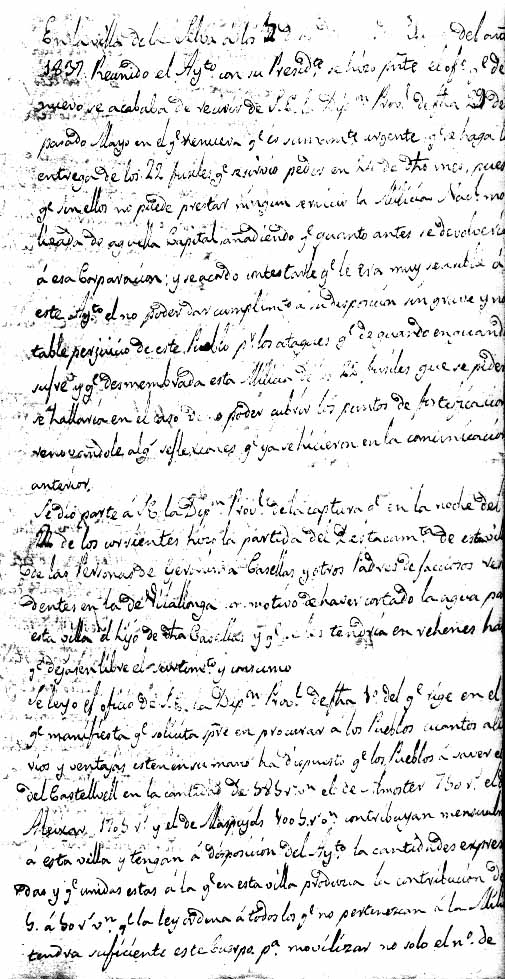 En la villa de la Selva á los 2 d del año
1837. Reunido el Ayto. con su Presidte. se hizo pnte. el ofo. qe. de
nuevo se acababa de recivir de S.E. la Dipon. Provl. de fha 29 de
pasado Mayo en el qe. renueva qe. es sumamte. urgente qe. se haga la
entrega de los 22 fusiles qe. se sirvio pedir en de dho mes, pues
qe. sin ellos no puede prestar ningun servicio la Milicia Nacl. mo
lizada de aquella Capital, añadiendo qe. quanto antes se devolveria
á esa Corporacion; y se acordo contestarle qe. le era muy sensible á
este Ayto. el no poder dar cumplimto. a su disposicion sin grave y no
table perjuicio de este Pueblo pr. los ataques qe. de quando en quando
sufre y qe. desmembrada esta Milicia de los 22 fusiles que se piden
se hallaria en el caso de no poder cubrir los puntos de fortificacion
renovandole algs. reflexiones qe. ya se hicieron en la comunicacion
anterior.
Se dió parte á S.E. la Dipon. Provl. de la captura qe. en la noche del
de los corrientes hizo la partida del Destacamto. de esta vill
de las Personas de Geronima Casellas y otros Padres de facciosos res
dentes en la de Vilallonga con motivo de haver cortado la agua pa
esta villa el hijo de dha Casellas y qe. los tendria en rehenes has
qe. dejasen libre el y consumo
Se leyó el oficio de S.E. la Dipon. Provl. de fha 1o. del qe. rige en el
qe. manifiesta qe. solicita pre. en procurar a los Pueblos cuantos ali
vios y ventajas esten en su mano ha dispuesto qe. los Pueblos á saver el
del Castellvell en la cantidad de 585 rs. vn. el de Almoster 730 rs. el d
Aleixar 1705 rs. y el de Maspujols 1005 rs. vn. contribuyan mensualm
á esta villa y tengan á disposición del Ayto. la cantidades expres
das y qe. unidas estas á la qe. en esta villa produzca la contribucion de
5. á 50 rs. vn. qe. la ley ordena á todos los qe. no pertenezcan á la Mili
tendra suficiente este Cuerpo pa. movilizar no solo el no. de